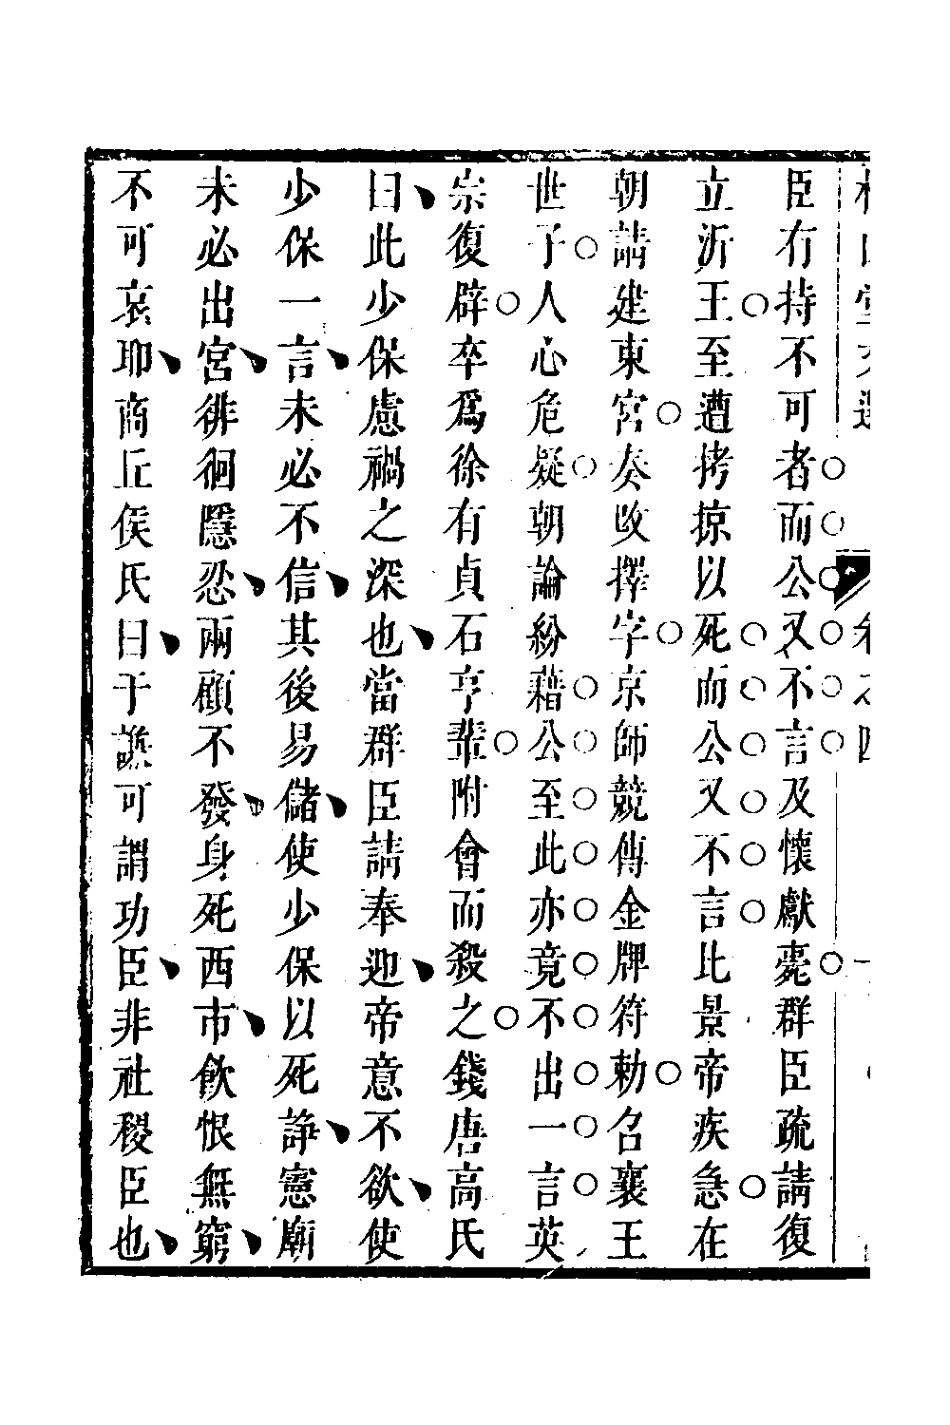 臣有持不可者而公又不言及懷獻薨群臣疏請復
立沂王至遭拷掠以死而公又不言比景帝疾急在
朝請建東宮奏改擇字京師競傳金牌符勅召襄王
世子人心危疑朝論紛藉公至此亦竟不出一言英
宗復辟卒爲徐有貞石亨輩附會而殺之錢唐高氏
曰此少保慮禍之深也當群臣請奉迎帝意不欲使
少保一言未必不信其後易儲使少保以死諍憲廟
未必出宮徘徊隱忍兩顧不發身死西市飲恨無窮
不可哀耶商丘侯氏曰于謙可謂功臣非社稷臣也